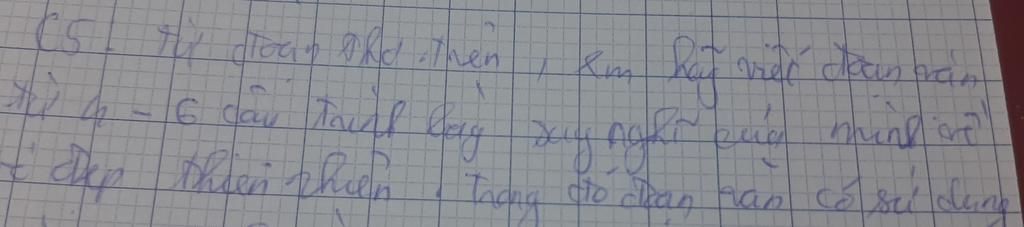 C5. Từ đoạn thơ trên, em hãy viết đoạn văn
từ 4 - 6 câu trình bày suy nghĩ của mình về
đẹp thiên nhiên, trong đó đoạn văn có sử dụng